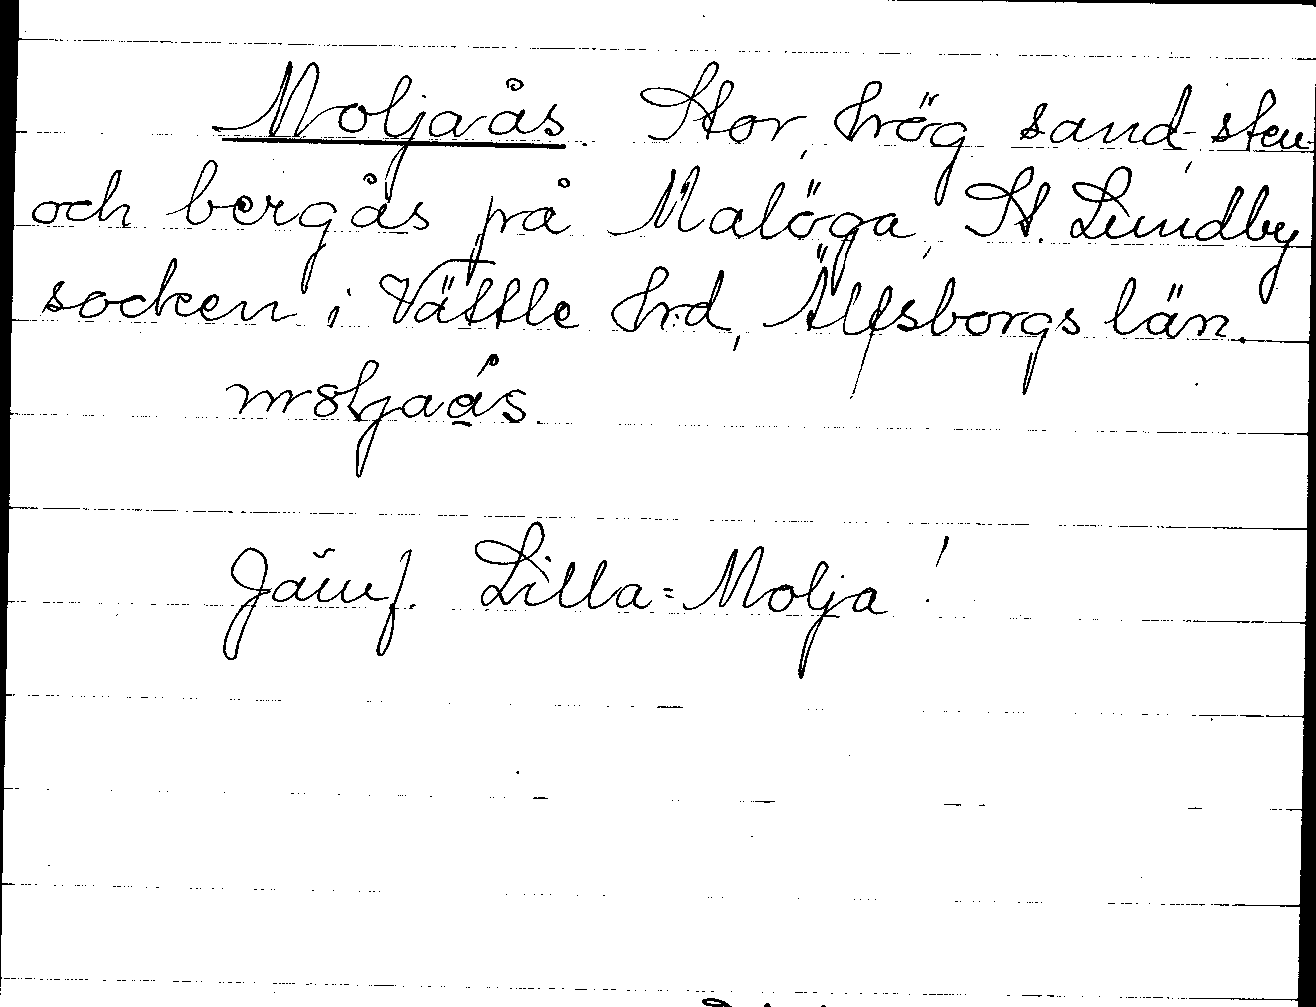 Moljaås. Stor, hög sand-, sten-
och bergås på Malöga, St. Lundby
socken i Vättle hrd, Älfsborgs län.
Jämf. Lilla-Molja!